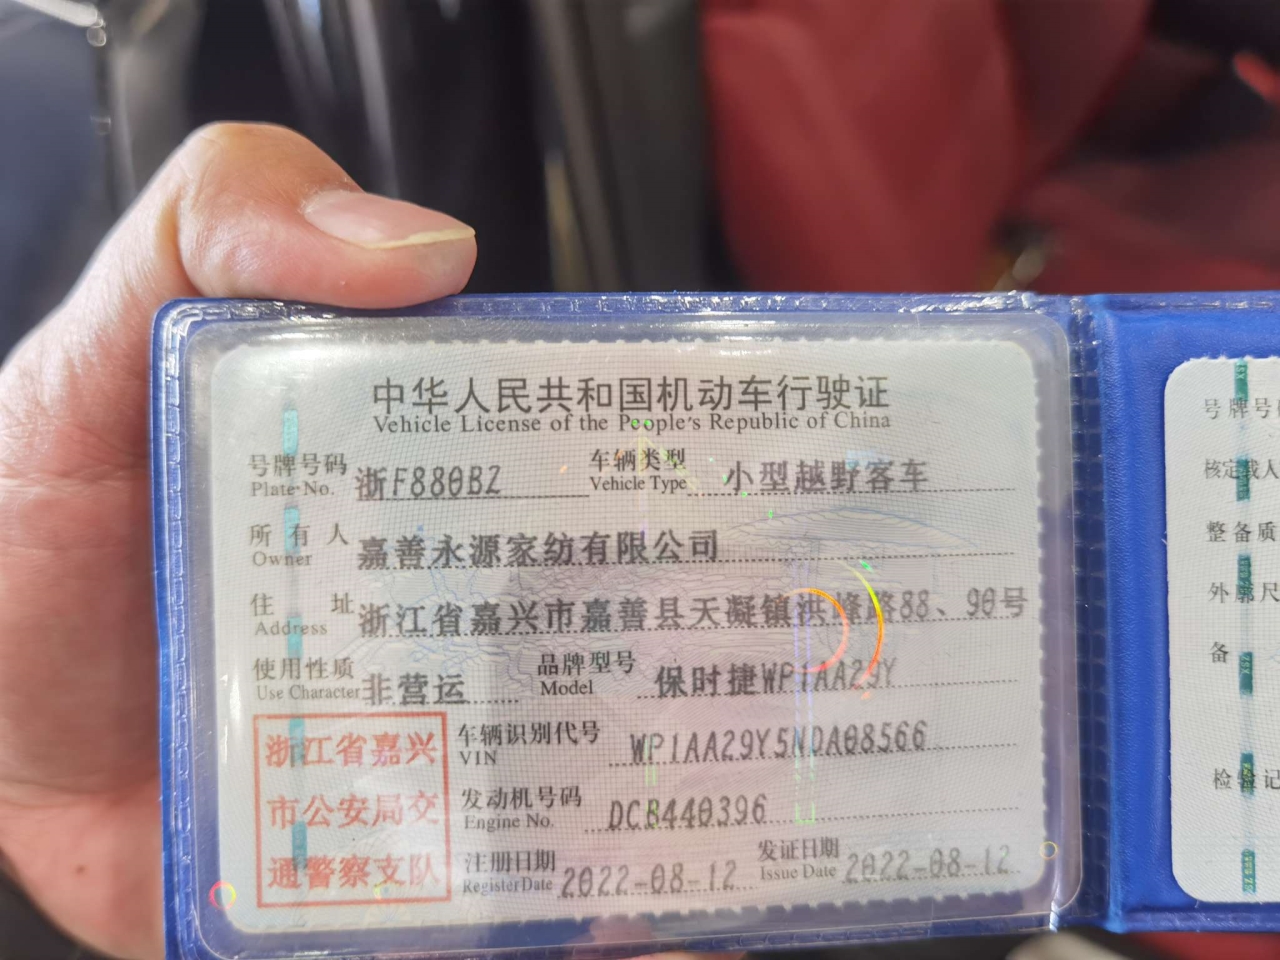 中华人民共和国机动车行驶证
Vehicle License of the People's Republic of China
号牌号码 浙F880BZ 车辆类型 小型越野客车
Plate No. Vehicle Type
所有人 嘉善永源家纺有限公司
Owner
住址 浙江省嘉兴市嘉善县天凝镇洪峰路88、90号
Address
使用性质 非营运 品牌型号 保时捷WP1AA29Y
Use Character Model
浙江省嘉兴
市公安局交
通警察支队
车辆识别代号 WP1AA29Y5NDA08566
VIN
发动机号码 DCB440396
Engine No.
注册日期 2022-08-12 发证日期 2022-08-12
Register Date Issue Date
号牌号
核定载人
整备质
外廓尺
备
检验记